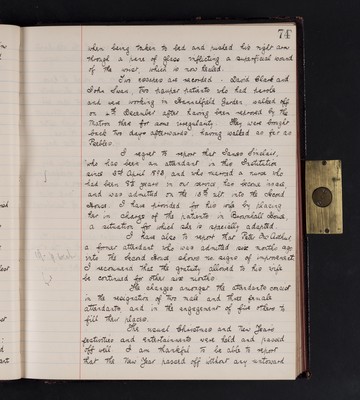 74
when being taken to bed and pushed his right arm
through a pane of glass inflicting a superficial wound
of the wrist, which is now healed.
Two escapes are recorded. David Black and
John Swan, two pauper patients who had parole
and were working in Craiglockhart Garden, walked off
on December after having been reproved by the
Matron there for some irregularity. They were brought
back two days afterwards having walked as far as
Peebles.
I regret to report that James Sinclair,
who has been an attendant in this Institution
since 1878 and who married a nurse who
had been 8½ years in our service has become insane
and was admitted on the 15th ult into the Second
House. I have provided for his wife by placing
her in charge of the patients in House,
a situation for which she is specially adapted.
I have also to report that Peter McArthur,
a former attendant who was admitted months ago
into the Second House shows no signs of improvement.
I recommend that the gratuity allowed to his wife
be continued for other six months.
The changes amongst the attendants consist
in the resignation of two male and three female
attendants, and in the engagement of five others to
fill their places.
The usual Christmas and New Years
festivities and entertainments were held and passed
off well. I am thankful to be able to report
that the New Year passed off without any untoward